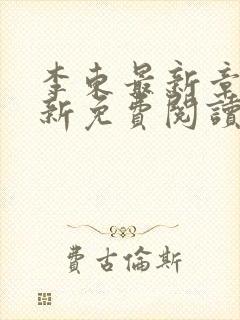 李東最新章
新免費閱讀
費古倫斯